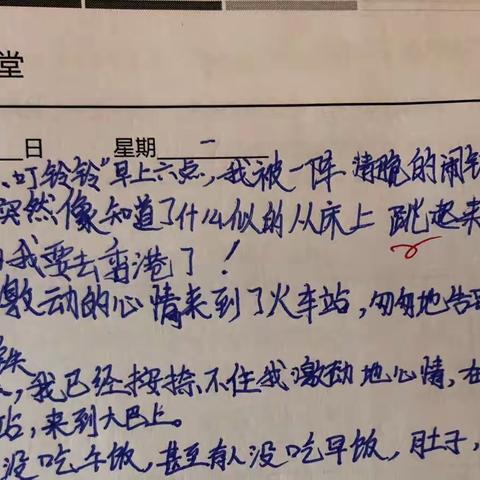 堂
日 星期一
叮铃铃"早上六点,我被一阵清脆的闹
突然像知道了什么似的从床上跳起来
我要去香港了!
激动的心情来到了火车站,匆匆地告
铁
,我已经按捺不住我激动地心情,在
站,来到大巴上。
没吃午饭,甚至有人没吃早饭,肚子,